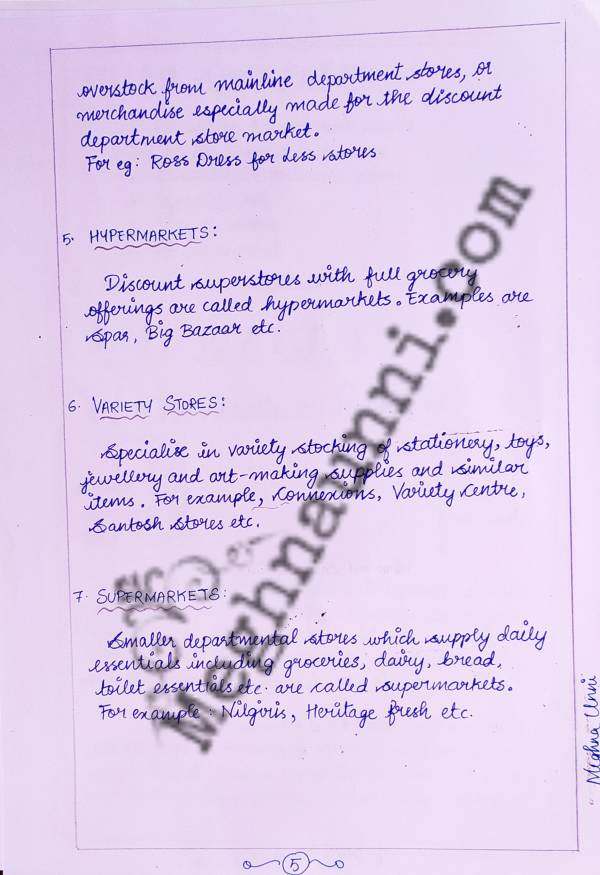 overstock from mainline department stores, or
merchandise especially made for the discount
department store market.
For eg: Ross Dress for Less stores
5. HYPERMARKETS:
Discount superstores with full grocery
offerings are called hypermarkets. Examples are
Spar, Big Bazaar etc.
6. VARIETY STORES:
Specialise in variety stocking of stationery, toys,
jewellery and art-making supplies and similar
items. For example, Connexions, Variety Centre,
Santosh Stores etc.
7. SUPERMARKETS:
Smaller departmental stores which supply daily
essentials including groceries, dairy, bread,
toilet essentials etc. are called supermarkets.
For example: Nilgiris, Heritage fresh etc.
5
Meghna Unni
Meghnaunni.com